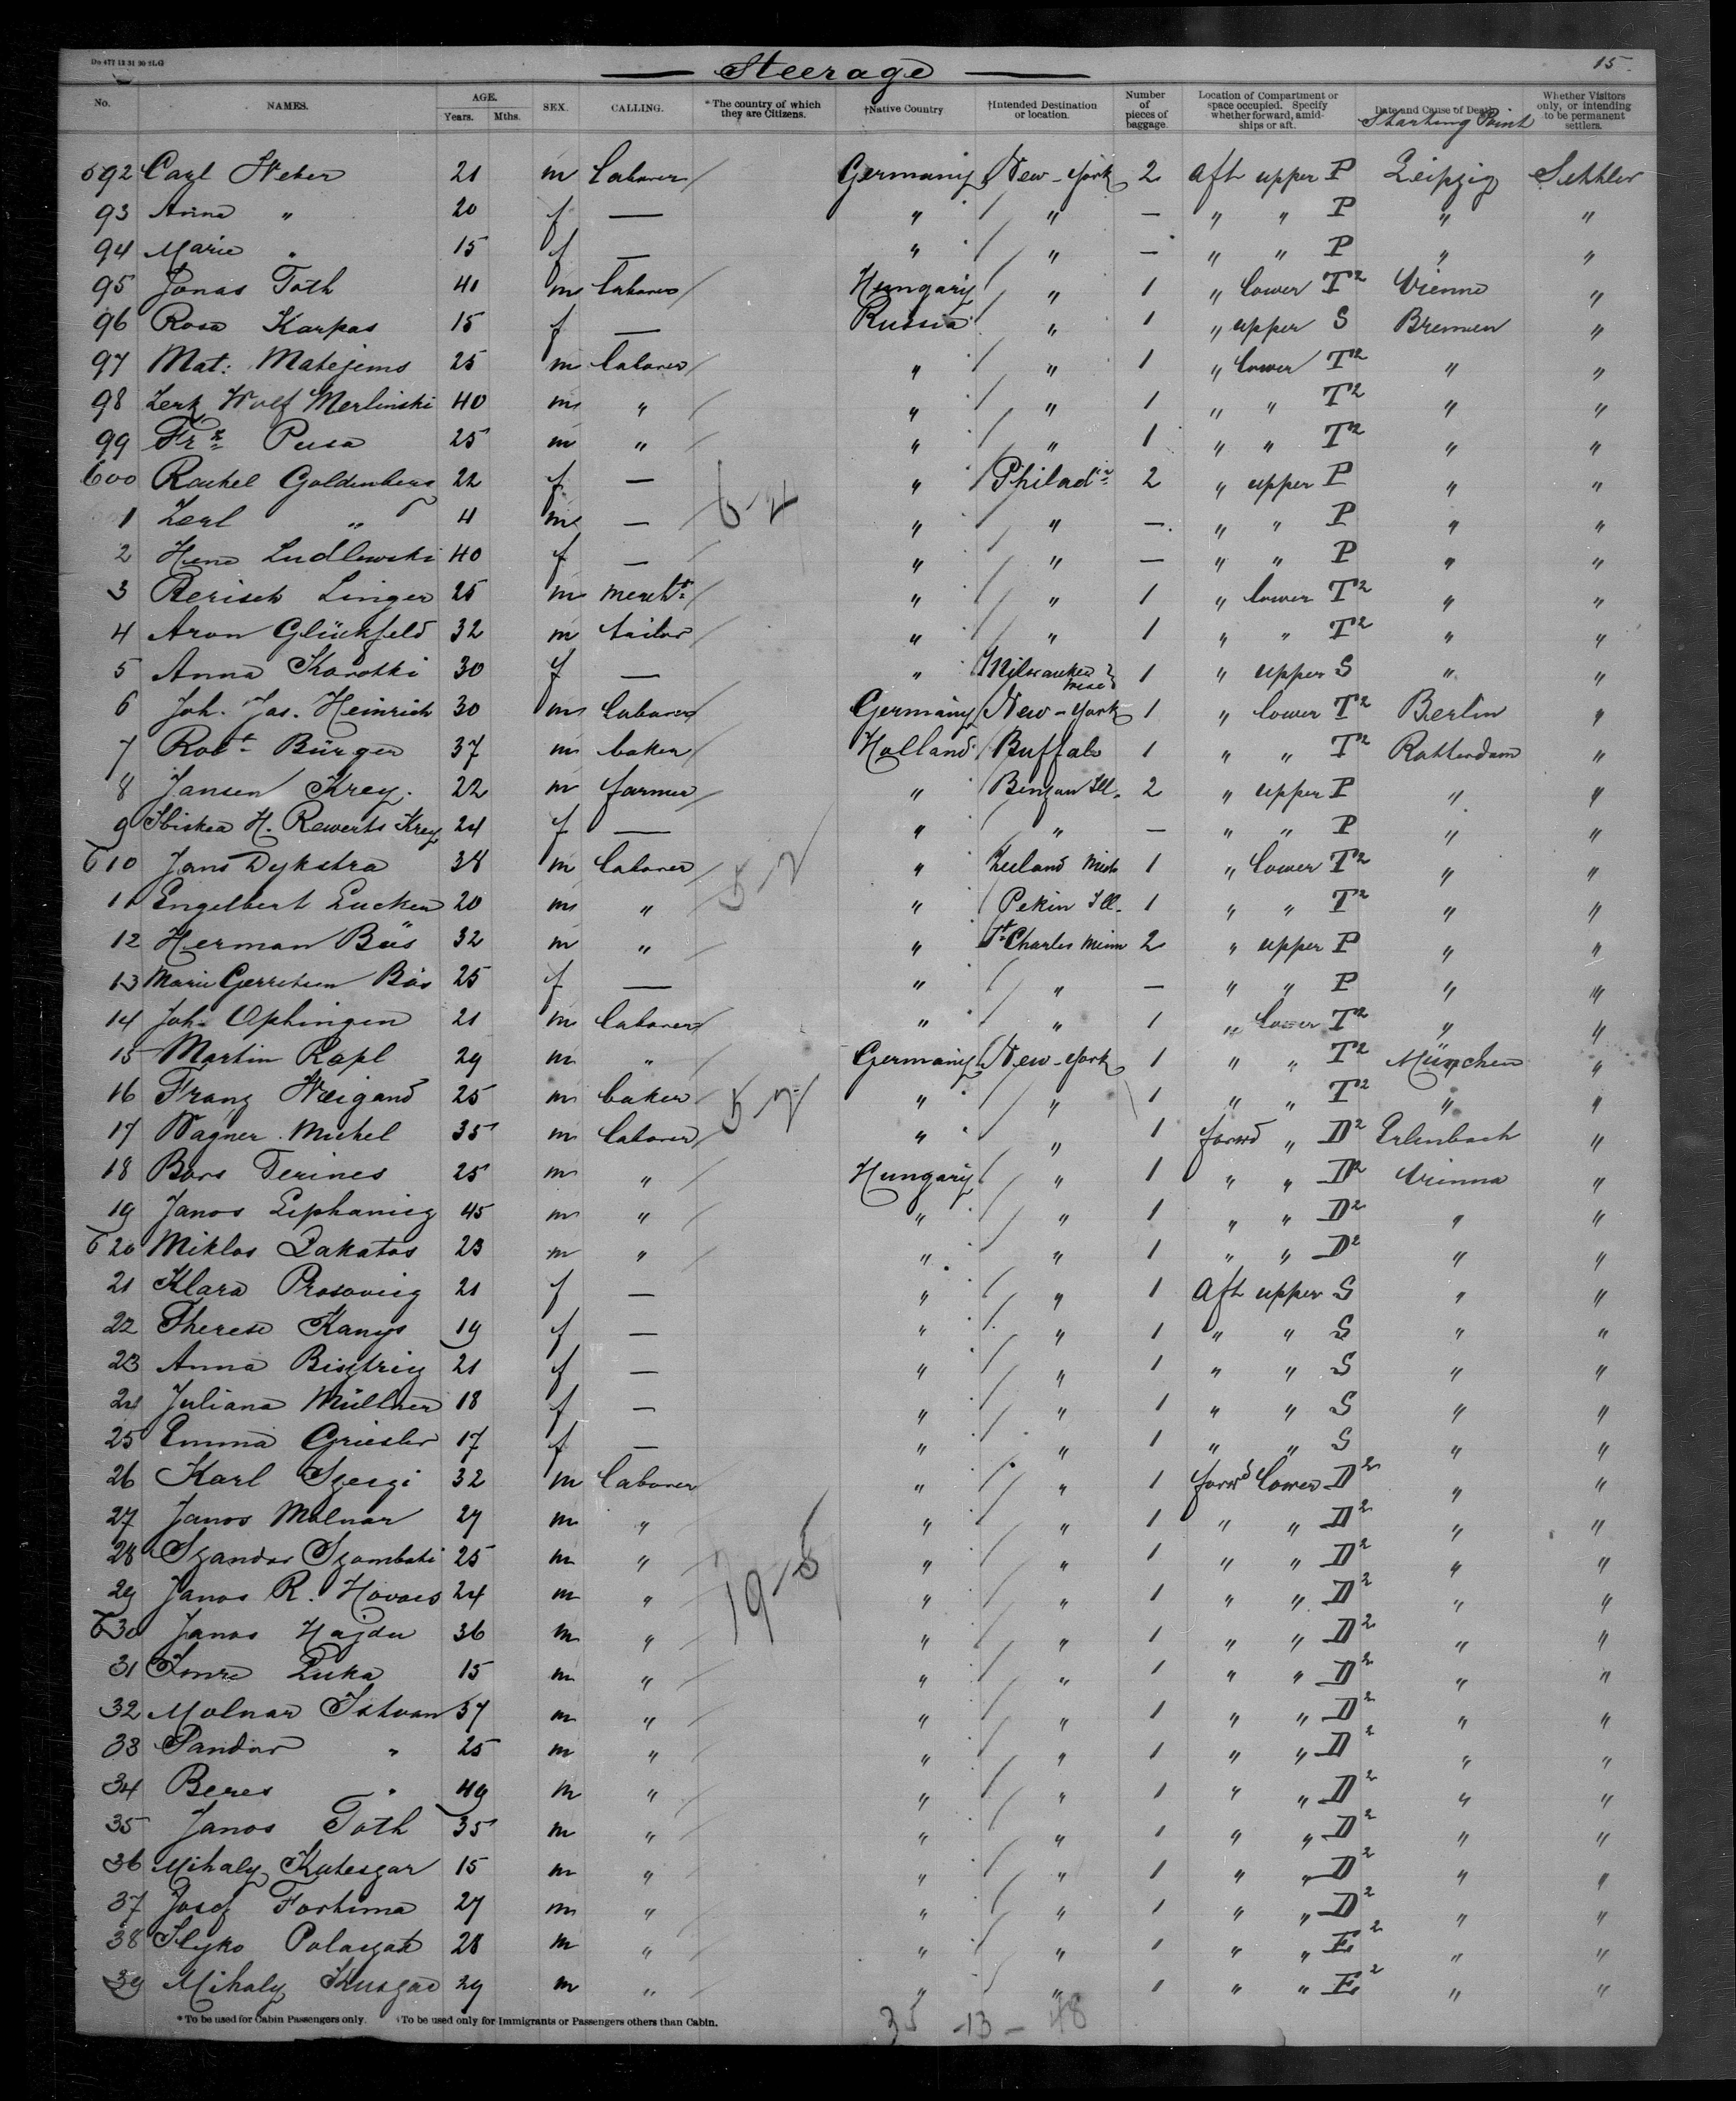 Steerage
15.
No. NAMES. AGE. Years. Mths. SEX. CALLING. *The country of which they are Citizens. †Native Country †Intended Destination or location. Number of pieces of baggage. Location of Compartment or space occupied. Specify whether forward, amidships or aft. Date and Cause of Death Starting Point Whether Visitors only, or intending to be permanent settlers.
592 Carl Weber 21 m laborer Germany New-York 2 Aft upper P Leipzig Settler
93 Anna " 20 f — " " — " " P " "
94 Marie " 15 f — " " — " " P " "
95 Jonas Toth 41 m laborer Hungary " 1 " lower T2 Vienna "
96 Rosa Karpas 15 f — Russia " 1 " upper S Bremen "
97 Mat: Matejems 25 m laborer " " 1 " lower T2 " "
98 Zerk Wolf Merlinski 40 m " " " 1 " " T2 " "
99 Frz Pusa 25 m " " " 1 " " T2 " "
600 Rachel Goldenberg 22 f — " Philada 2 " upper P " "
1 Zerl " 4 m — " " — " " P " "
2 Hene Ludlewski 40 f — " " — " " P " "
3 Berisch Linger 25 m mercht " " 1 " lower T2 " "
4 Aron Glückfeld 32 m tailor " " 1 " " T2 " "
5 Anna Korotki 30 f — " Milwaukee 1 " upper S " "
6 Joh. Jas. Heinrich 30 m laborer Germany New-York 1 " lower T2 Berlin "
7 Robt Bürger 37 m baker Holland Buffalo 1 " " T2 Rotterdam "
8 Jansen Krey. 22 m farmer " Ill. 2 " upper P " "
9 H. Rewerts Krey 24 f — " " — " " P " "
610 Jans Dykstra 38 m laborer " Zeeland Mich 1 " lower T2 " "
11 Engelbert Lucken 20 m " " Pekin Ill. 1 " " T2 " "
12 Herman Büs 32 m " " St Charles Minn 2 " upper P " "
13 Marie Gerretsen Büs 25 f — " " — " " P " "
14 Joh. Ophingen 21 m laborer " " 1 " lower T2 " "
15 Martin Rapl 29 m " Germany New-York 1 " " T2 München "
16 Franz Weigand 25 m baker " " 1 " " T2 " "
17 Wagner Michel 35 m laborer " " 1 forwd " D2 Erlenbach "
18 Bors Terines 25 m " Hungary " 1 " " D2 Vienna "
19 Janos 45 m " " " 1 " " D2 " "
620 Miklos Lakatos 23 m " " " 1 " " D2 " "
21 Klara Prosovicz 21 f — " " 1 Aft upper S " "
22 Therese Kanys 19 f — " " 1 " " S " "
23 Anna Bisztriz 21 f — " " 1 " " S " "
24 Juliana Müllner 18 f — " " 1 " " S " "
25 Emma Griesler 17 f — " " 1 " " S " "
26 Karl Szergi 32 m laborer " " 1 forwd lower D2 " "
27 Janos Molnar 27 m " " " 1 " " D2 " "
28 Szandor Szombati 25 m " " " 1 " " D2 " "
29 Janos R. Hovacs 24 m " " " 1 " " D2 " "
630 Janos Hajdu 36 m " " " 1 " " D2 " "
31 Imre Luka 15 m " " " 1 " " D2 " "
32 Molnar Istvan 37 m " " " 1 " " D2 " "
33 Sandor " 25 m " " " 1 " " D2 " "
34 Beres " 49 m " " " 1 " " D2 " "
35 Janos Toth 35 m " " " 1 " " D2 " "
36 Mihaly Kuteszar 15 m " " " 1 " " D2 " "
37 Josef Fortuna 27 m " " " 1 " " D2 " "
38 28 m " " " 1 " " E2 " "
39 Mihaly 29 m " " " 1 " " E2 " "
*To be used for Cabin Passengers only. †To be used only for Immigrants or Passengers others than Cabin.
35 -13- 48